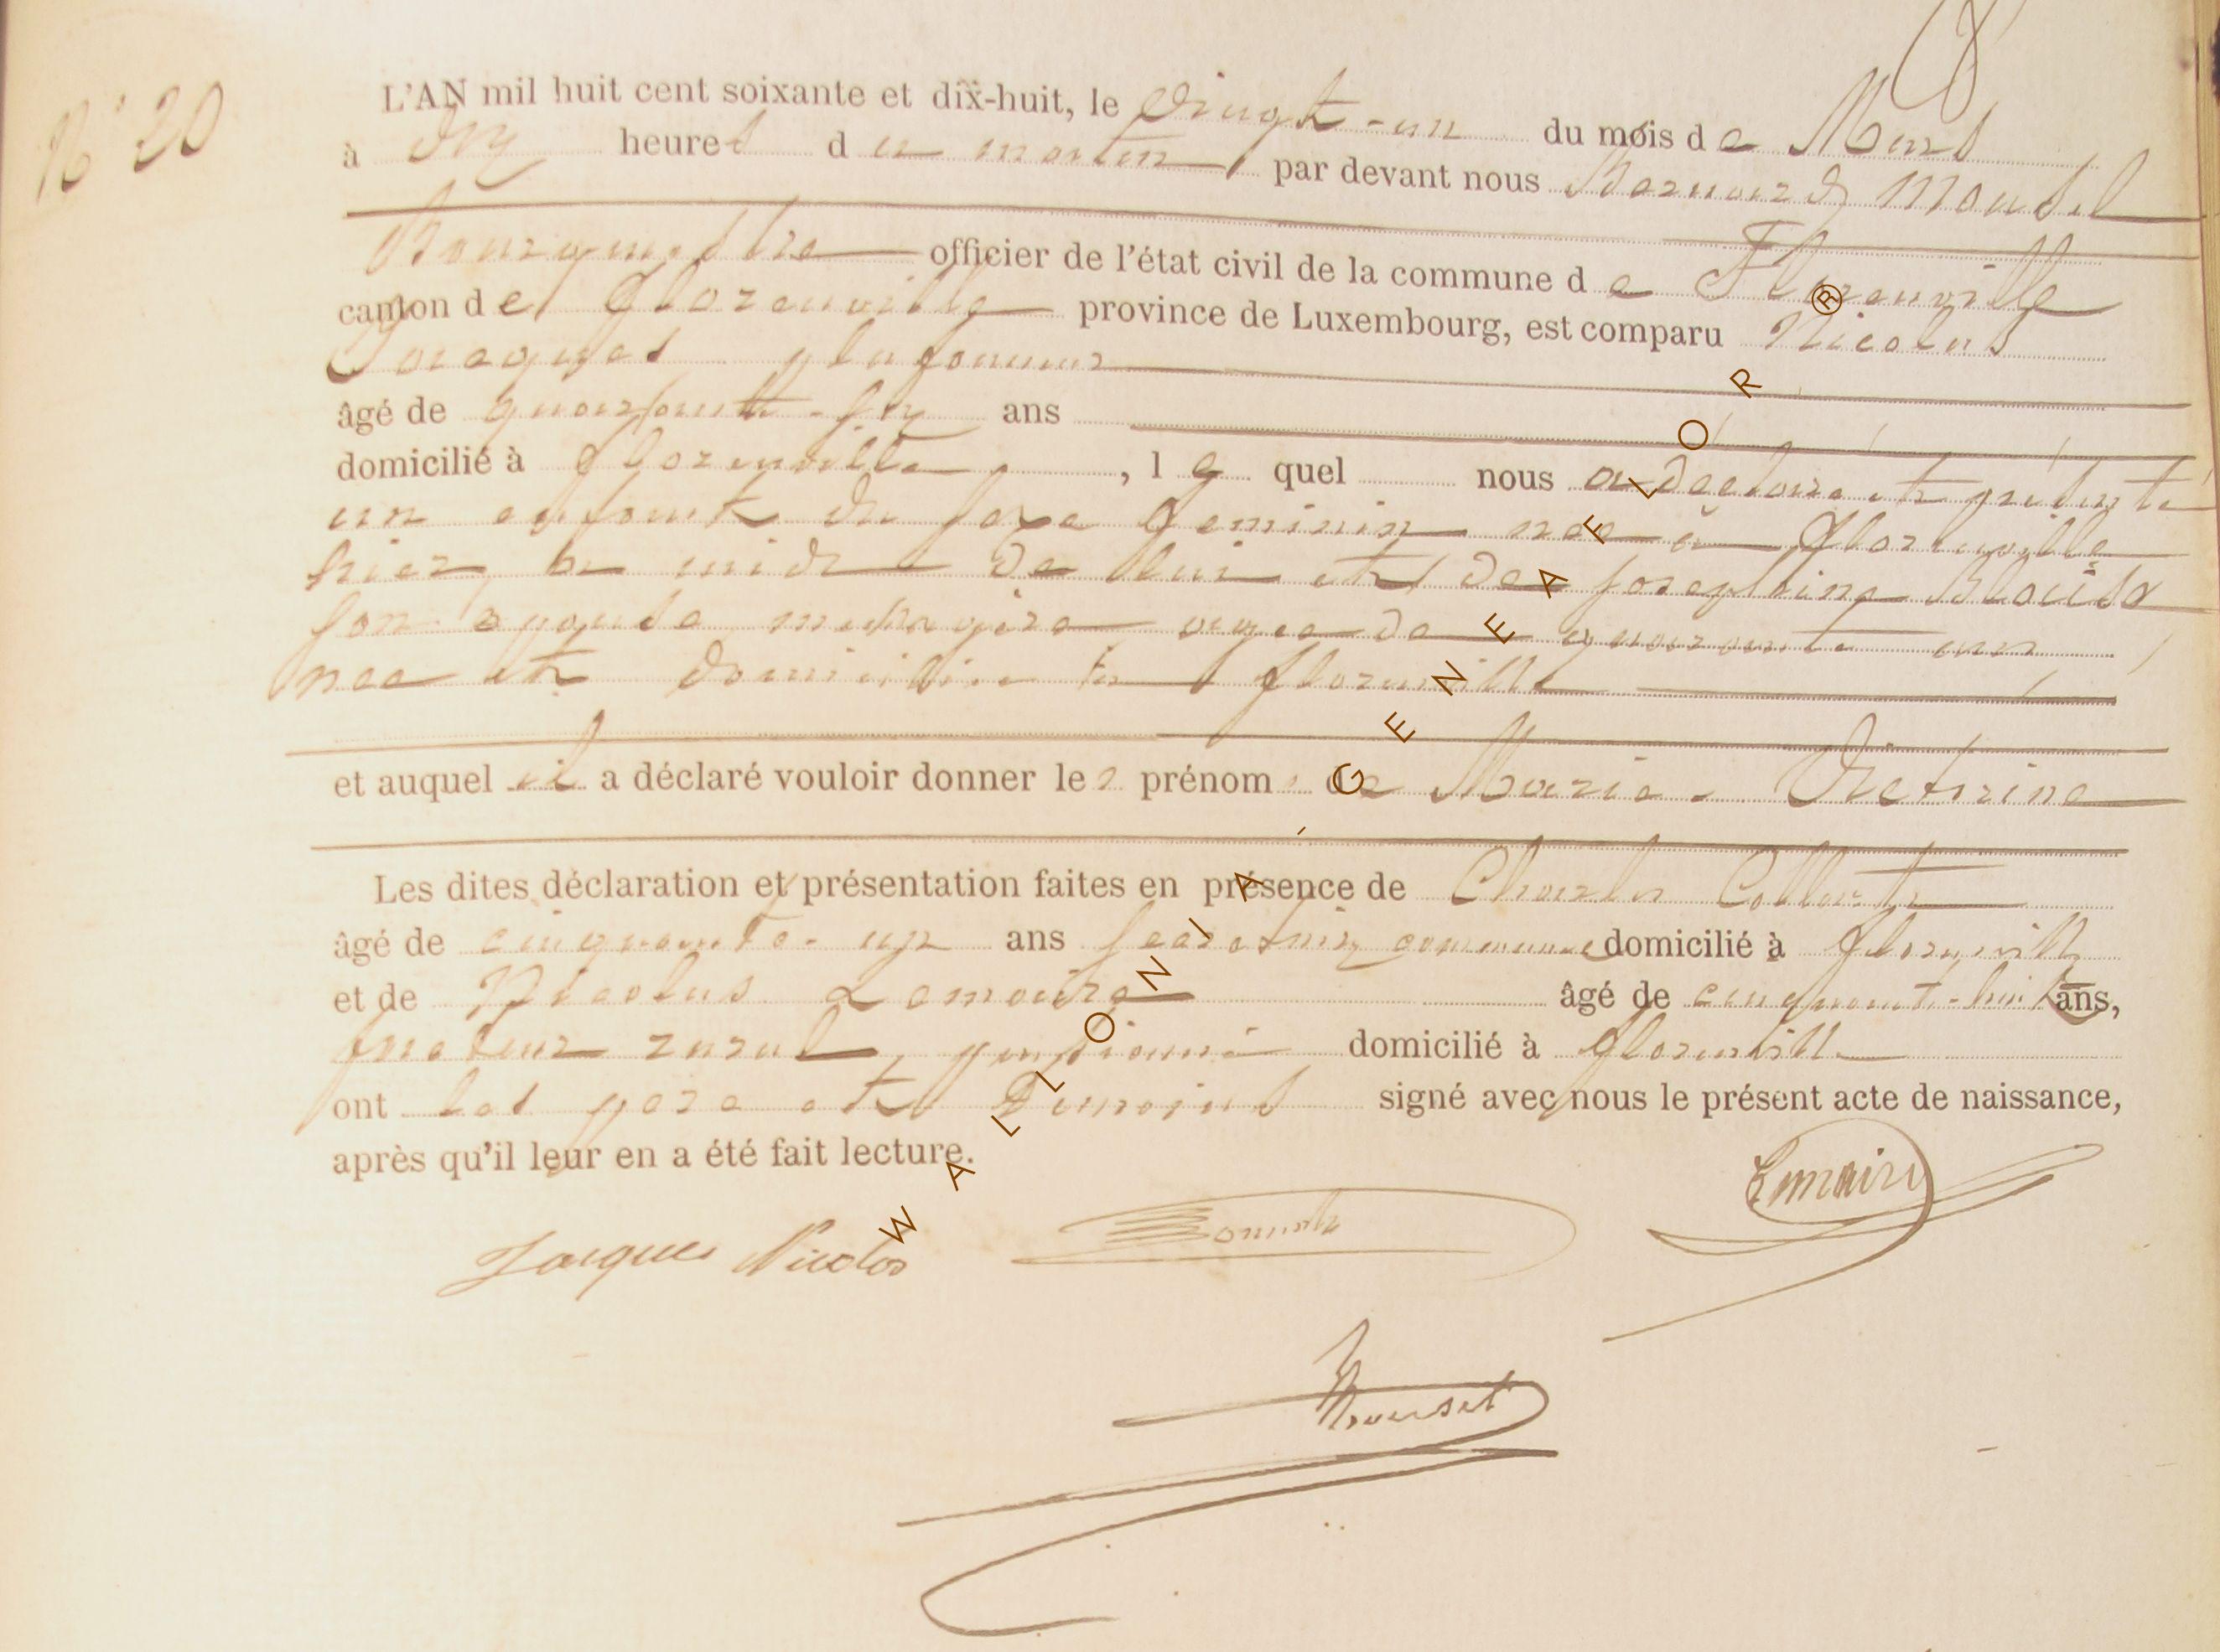 N° 20
L'AN mil huit cent soixante et dix-huit, le vingt-un du mois de Mars
à dix heures du matin, par devant nous Bernard Mousel
Bourgmestre officier de l'état civil de la commune de Florenville
canton de Florenville province de Luxembourg, est comparu Nicolas
Jacques plafonneur
âgé de quarante-six ans
domicilié à Florenville, lequel nous a déclaré et présenté
un enfant du sexe féminin née à Florenville
hier, à midi de lui et de Joséphine
son épouse ménagère agée de quarante un
née et domiciliée à Florenville
et auquel il a déclaré vouloir donner les prénoms de Marie-Victorine
Les dites déclaration et présentation faites en présence de Charles
âgé de cinquante-un ans secrétaire communal domicilié à Florenville
et de Nicolas Lemaire âgé de cinquante-huit ans,
facteur rural, pensionné domicilié à Florenville
ont les père et témoins signé avec nous le présent acte de naissance,
après qu'il leur en a été fait lecture.
Jacques Nicolas Lemaire
WALLONIA'GENEAFLOR®